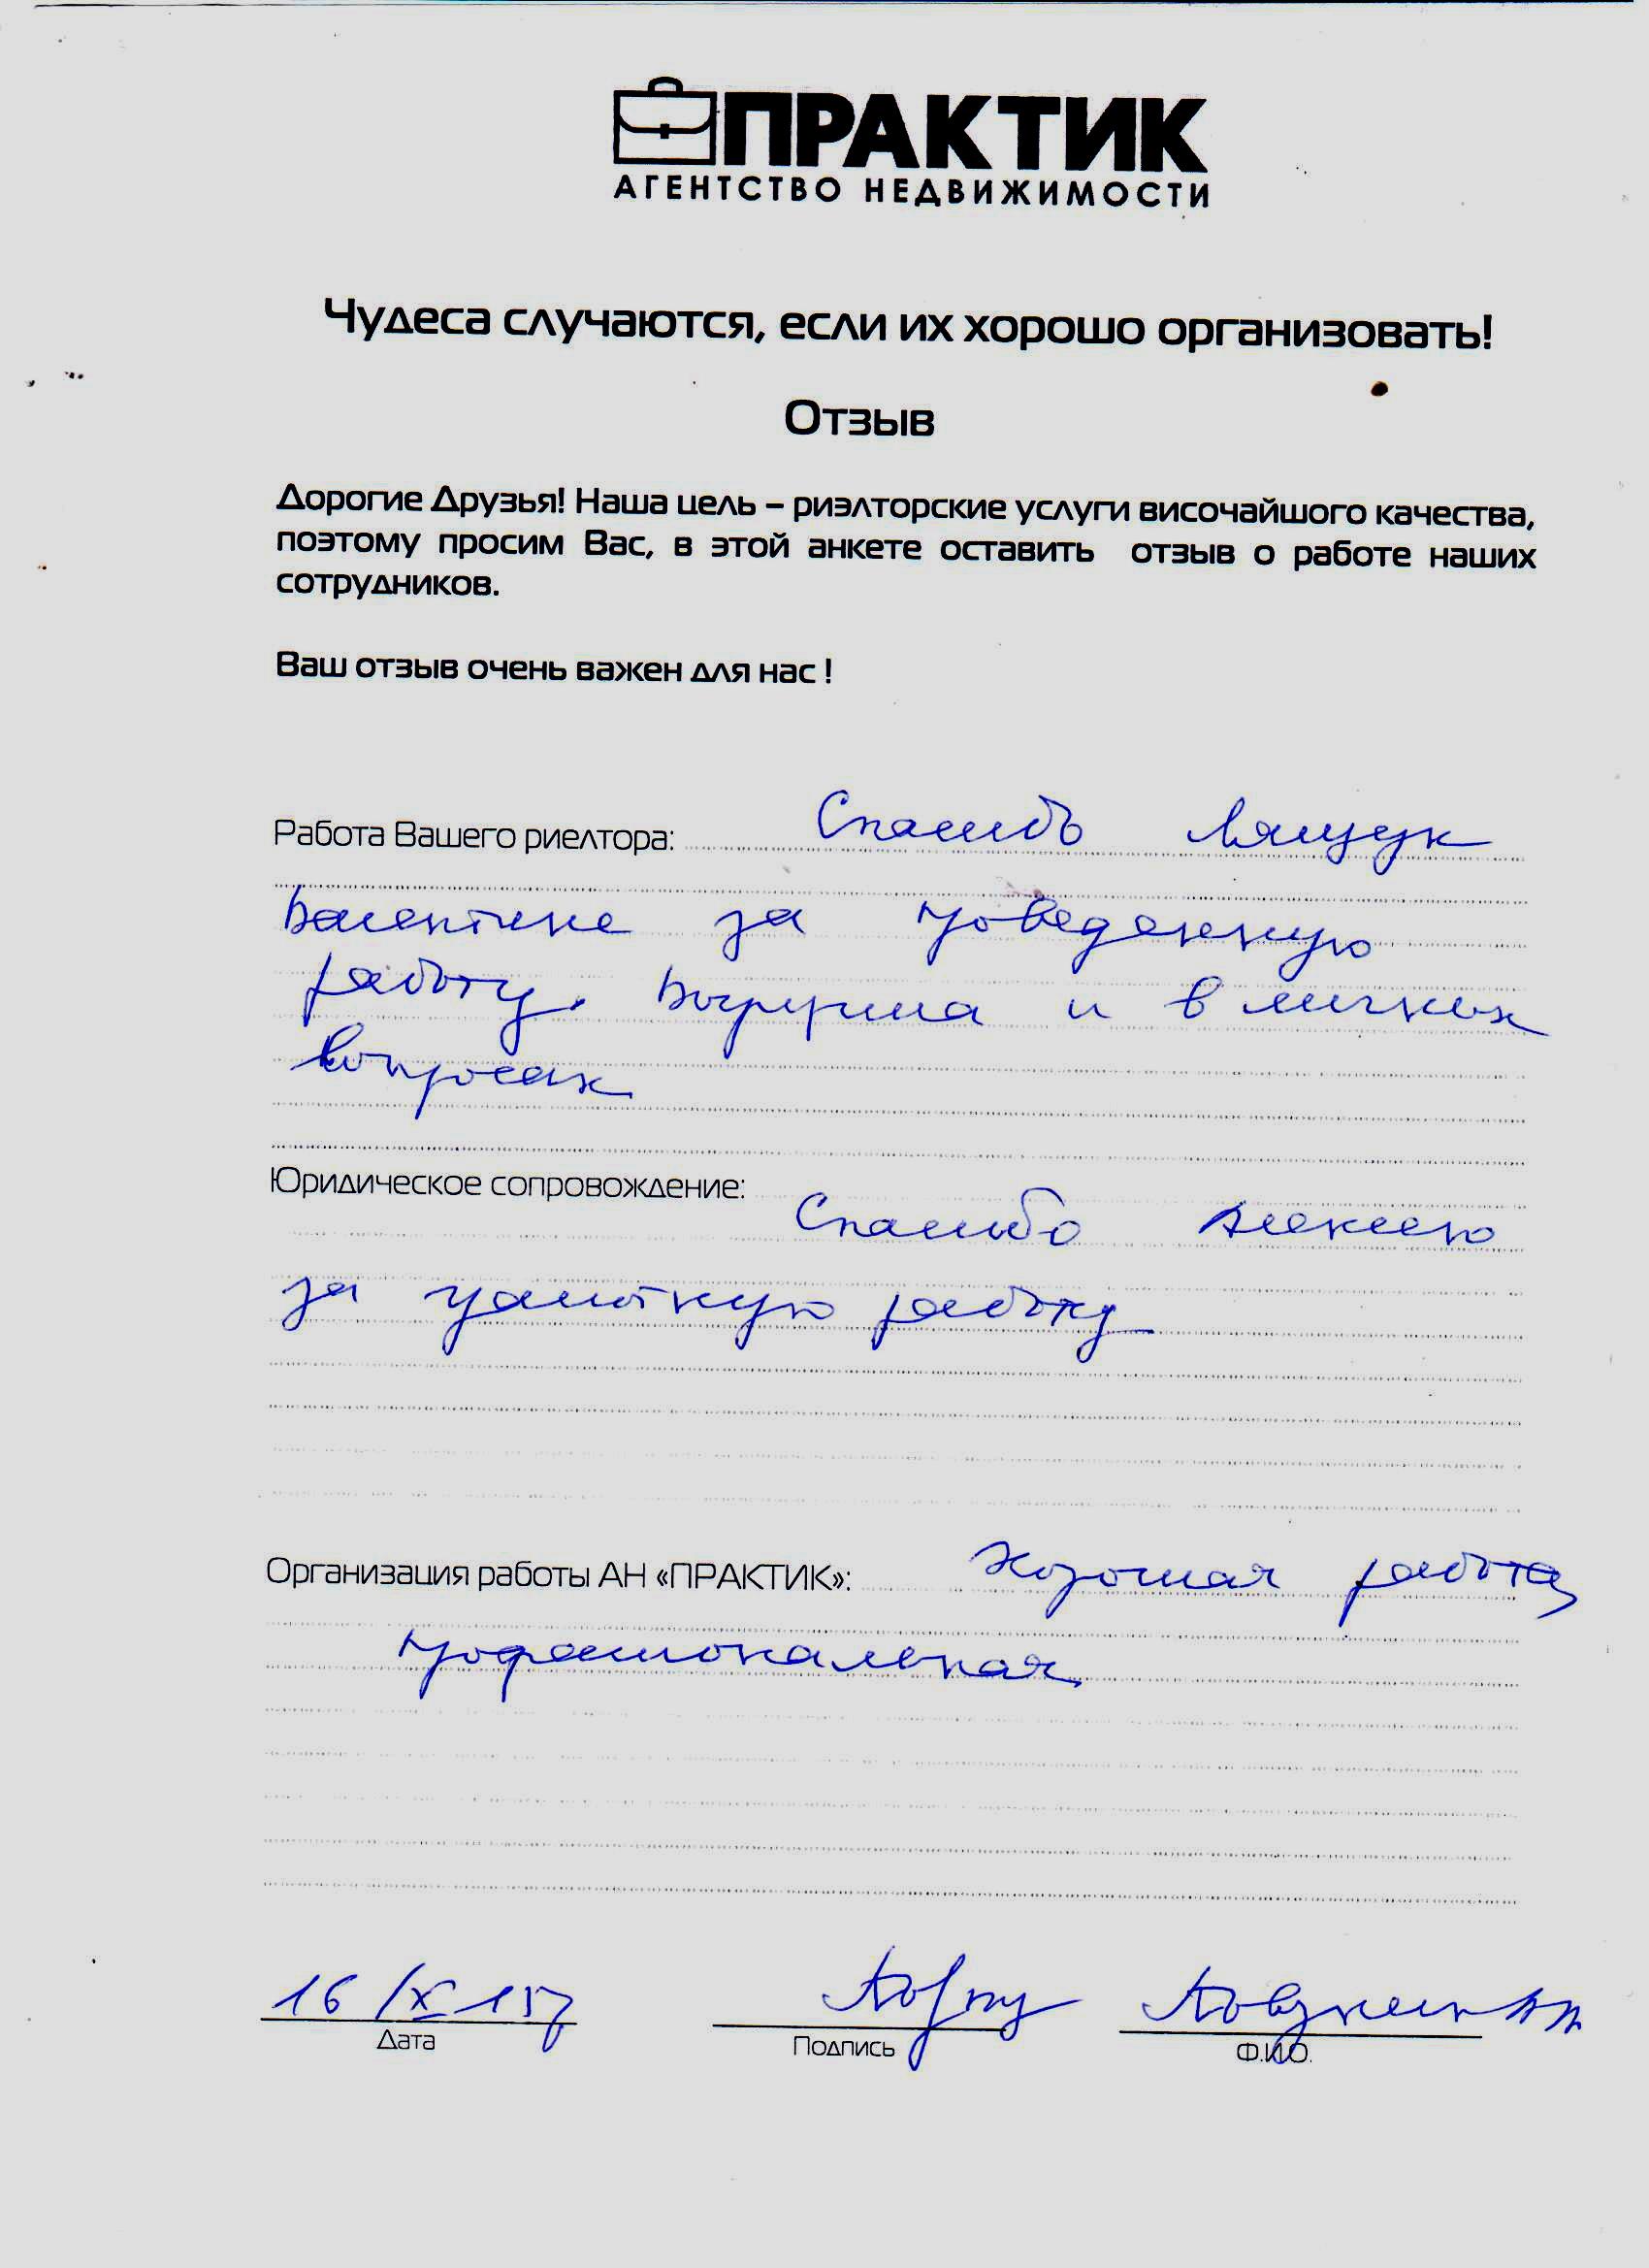 ПРАКТИК
АГЕНТСТВО НЕДВИЖИМОСТИ
Чудеса случаются, если их хорошо организовать!
Отзыв
Дорогие Друзья! Наша цель – риэлторские услуги височайшого качества,
поэтому просим Вас, в этой анкете оставить отзыв о работе наших
сотрудников.
Ваш отзыв очень важен для нас !
Работа Вашего риелтора: Спасибо Лящук
Валентине за проведенную
работу. Выручила и в личных
вопросах
Юридическое сопровождение:
Спасибо Алексею
за грамотную работу
Организация работы АН «ПРАКТИК»: Хорошая работа,
профессиональная
16/X 15г
Дата
Подпись
Ф.И.О.